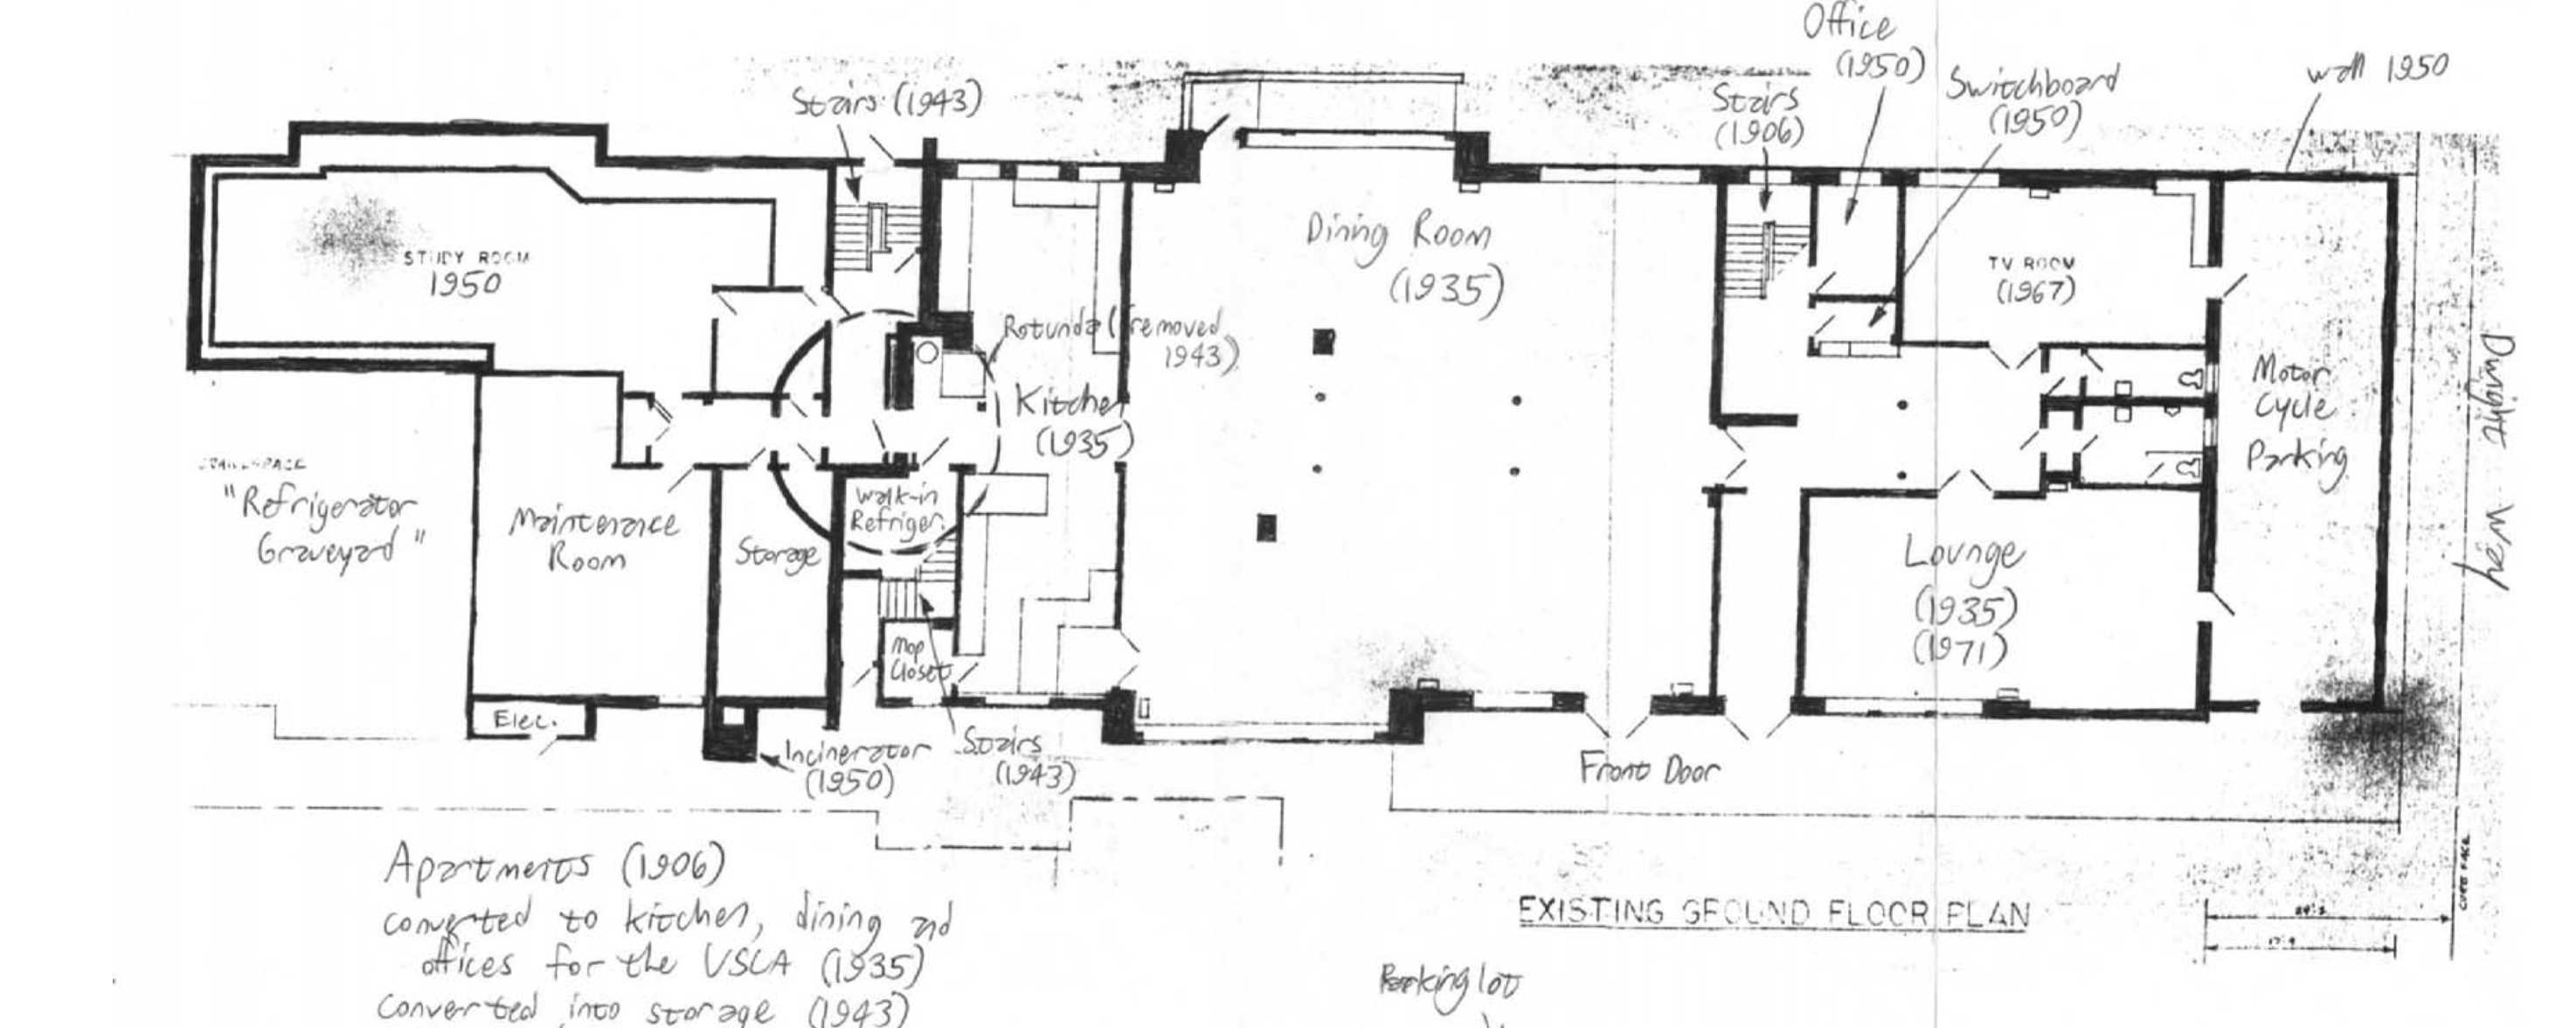 Office
(1950)
Switchboard
(1950)
wall 1950
Stairs (1943)
Stairs
(1906)
STUDY ROOM
1950
Dining Room
(1935)
TV ROOM
(1967)
Rotunda (removed
1943)
Kitchen
(1935)
Motor
Cycle
Parking
Dwight Way
CRAWLSPACE
"Refrigerator
Graveyard"
Maintenance
Room
Storage
Walk-in
Refriger.
Mop
Closet
Lounge
(1935)
(1971)
Elec.
Incinerator
(1950)
Stairs
(1943)
Front Door
Apartments (1906)
converted to kitchen, dining and
offices for the USCA (1935)
converted into storage (1943)
EXISTING GROUND FLOOR PLAN
CURB FACE
Parking lot